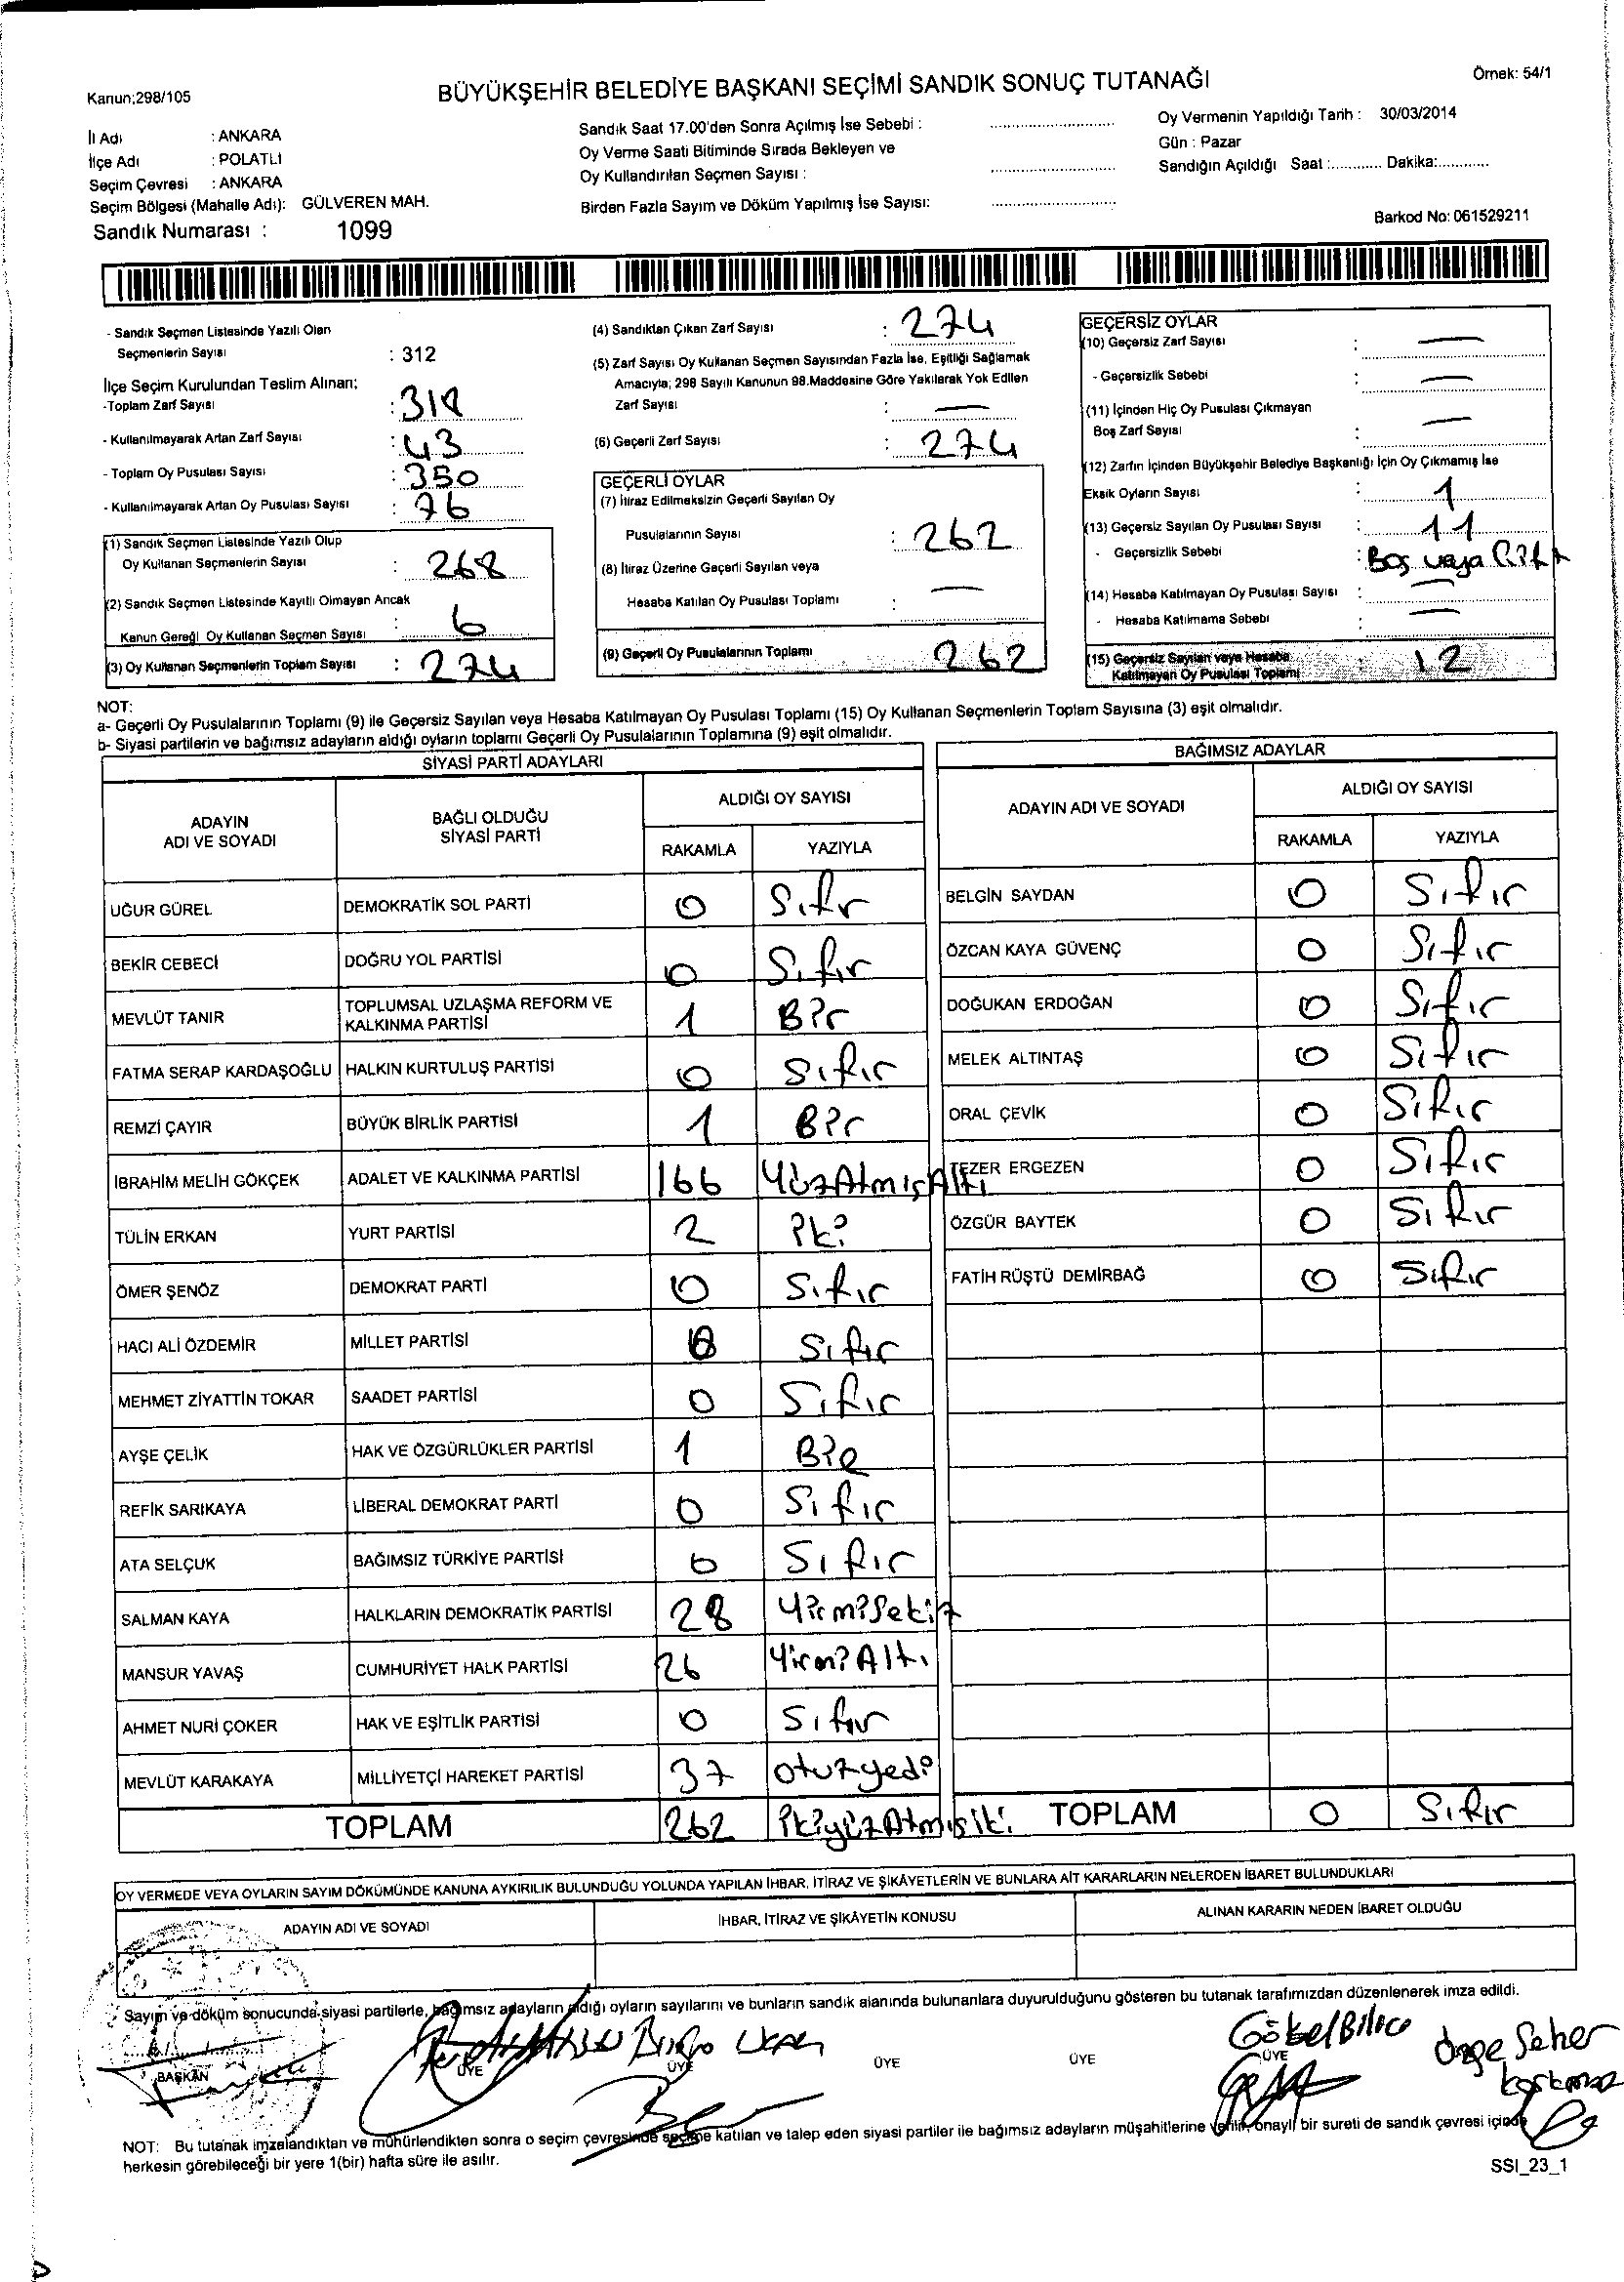 Kanun;298/105
BÜYÜKŞEHİR BELEDİYE BAŞKANI SEÇİMİ SANDIK SONUÇ TUTANAĞI
Örnek: 54/1
İl Adı : ANKARA
İlçe Adı : POLATLI
Seçim Çevresi : ANKARA
Seçim Bölgesi (Mahalle Adı): GÜLVEREN MAH.
Sandık Numarası : 1099
Sandık Saat 17.00'den Sonra Açılmış İse Sebebi :
Oy Verme Saati Bitiminde Sırada Bekleyen ve
Oy Kullandırılan Seçmen Sayısı :
Birden Fazla Sayım ve Döküm Yapılmış İse Sayısı:
Oy Vermenin Yapıldığı Tarih : 30/03/2014
Gün : Pazar
Sandığın Açıldığı Saat :............ Dakika:............
Barkod No: 061529211
- Sandık Seçmen Listesinde Yazılı Olan
Seçmenlerin Sayısı : 312
İlçe Seçim Kurulundan Teslim Alınan:
-Toplam Zarf Sayısı :
- Kullanılmayarak Artan Zarf Sayısı : 43
- Toplam Oy Pusulası Sayısı : 350
- Kullanılmayarak Artan Oy Pusulası Sayısı : 76
(1) Sandık Seçmen Listesinde Yazılı Olup
Oy Kullanan Seçmenlerin Sayısı : 268
(2) Sandık Seçmen Listesinde Kayıtlı Olmayan Ancak
Kanun Gereği Oy Kullanan Seçmen Sayısı : 6
(3) Oy Kullanan Seçmenlerin Toplam Sayısı : 274
(4) Sandıktan Çıkan Zarf Sayısı : 274
(5) Zarf Sayısı Oy Kullanan Seçmen Sayısından Fazla İse, Eşitliği Sağlamak
Amacıyla; 298 Sayılı Kanunun 98.Maddesine Göre Yakılarak Yok Edilen
Zarf Sayısı : —
(6) Geçerli Zarf Sayısı : 274
GEÇERLİ OYLAR
(7) İtiraz Edilmeksizin Geçerli Sayılan Oy
Pusulalarının Sayısı : 262
(8) İtiraz Üzerine Geçerli Sayılan veya
Hesaba Katılan Oy Pusulası Toplamı : —
(9) Geçerli Oy Pusulalarının Toplamı 262
GEÇERSİZ OYLAR
(10) Geçersiz Zarf Sayısı : —
- Geçersizlik Sebebi : —
(11) İçinden Hiç Oy Pusulası Çıkmayan
Boş Zarf Sayısı : —
(12) Zarfın İçinden Büyükşehir Belediye Başkanlığı İçin Oy Çıkmamış İse
Eksik Oyların Sayısı : 1
(13) Geçersiz Sayılan Oy Pusulası Sayısı : 11
- Geçersizlik Sebebi : Boş veya Çift
(14) Hesaba Katılmayan Oy Pusulası Sayısı : —
- Hesaba Katılmama Sebebi : —
(15) Geçersiz Sayılan veya Hesaba
Katılmayan Oy Pusulası Toplamı : 12
NOT:
a- Geçerli Oy Pusulalarının Toplamı (9) ile Geçersiz Sayılan veya Hesaba Katılmayan Oy Pusulası Toplamı (15) Oy Kullanan Seçmenlerin Toplam Sayısına (3) eşit olmalıdır.
b- Siyasi partilerin ve bağımsız adayların aldığı oyların toplamı Geçerli Oy Pusulalarının Toplamına (9) eşit olmalıdır.
SİYASİ PARTİ ADAYLARI
ADAYIN ADI VE SOYADI
BAĞLI OLDUĞU SİYASİ PARTİ
ALDIĞI OY SAYISI
RAKAMLA YAZIYLA
UĞUR GÜREL DEMOKRATİK SOL PARTİ 0 Sıfır
BEKİR CEBECİ DOĞRU YOL PARTİSİ 0 Sıfır
MEVLÜT TANIR TOPLUMSAL UZLAŞMA REFORM VE KALKINMA PARTİSİ 1 Bir
FATMA SERAP KARDAŞOĞLU HALKIN KURTULUŞ PARTİSİ 0 Sıfır
REMZİ ÇAYIR BÜYÜK BİRLİK PARTİSİ 1 Bir
İBRAHİM MELİH GÖKÇEK ADALET VE KALKINMA PARTİSİ 166 YüzAtmışAltı
TÜLİN ERKAN YURT PARTİSİ 2 İki
ÖMER ŞENÖZ DEMOKRAT PARTİ 0 Sıfır
HACI ALİ ÖZDEMİR MİLLET PARTİSİ 0 Sıfır
MEHMET ZİYATTİN TOKAR SAADET PARTİSİ 0 Sıfır
AYŞE ÇELİK HAK VE ÖZGÜRLÜKLER PARTİSİ 1 Bir
REFİK SARIKAYA LİBERAL DEMOKRAT PARTİ 0 Sıfır
ATA SELÇUK BAĞIMSIZ TÜRKİYE PARTİSİ 0 Sıfır
SALMAN KAYA HALKLARIN DEMOKRATİK PARTİSİ 28 YirmiSekiz
MANSUR YAVAŞ CUMHURİYET HALK PARTİSİ 26 Yirmi Altı
AHMET NURİ ÇOKER HAK VE EŞİTLİK PARTİSİ 0 Sıfır
MEVLÜT KARAKAYA MİLLİYETÇİ HAREKET PARTİSİ 37 otuzyedi
TOPLAM 262 İkiyüzAtmışİki
BAĞIMSIZ ADAYLAR
ADAYIN ADI VE SOYADI
ALDIĞI OY SAYISI
RAKAMLA YAZIYLA
BELGİN SAYDAN 0 Sıfır
ÖZCAN KAYA GÜVENÇ 0 Sıfır
DOĞUKAN ERDOĞAN 0 Sıfır
MELEK ALTINTAŞ 0 Sıfır
ORAL ÇEVİK 0 Sıfır
TEZER ERGEZEN 0 Sıfır
ÖZGÜR BAYTEK 0 Sıfır
FATİH RÜŞTÜ DEMİRBAĞ 0 Sıfır
TOPLAM 0 Sıfır
OY VERMEDE VEYA OYLARIN SAYIM DÖKÜMÜNDE KANUNA AYKIRILIK BULUNDUĞU YOLUNDA YAPILAN İHBAR, İTİRAZ VE ŞİKÂYETLERİN VE BUNLARA AİT KARARLARIN NELERDEN İBARET BULUNDUKLARI
ADAYIN ADI VE SOYADI
İHBAR, İTİRAZ VE ŞİKÂYETİN KONUSU
ALINAN KARARIN NEDEN İBARET OLDUĞU
Sayım ve döküm sonucunda siyasi partilerle, bağımsız adayların aldığı oyların sayılarını ve bunların sandık alanında bulunanlara duyurulduğunu gösteren bu tutanak tarafımızdan düzenlenerek imza edildi.
Özge Seher Korkmaz
BAŞKAN ÜYE ÜYE ÜYE ÜYE ÜYE
NOT: Bu tutanak imzalandıktan ve mühürlendikten sonra o seçim çevresinde seçime katılan ve talep eden siyasi partiler ile bağımsız adayların müşahitlerine verilir, onaylı bir sureti de sandık çevresi içinde
herkesin görebileceği bir yere 1(bir) hafta süre ile asılır.
SSI_23_1